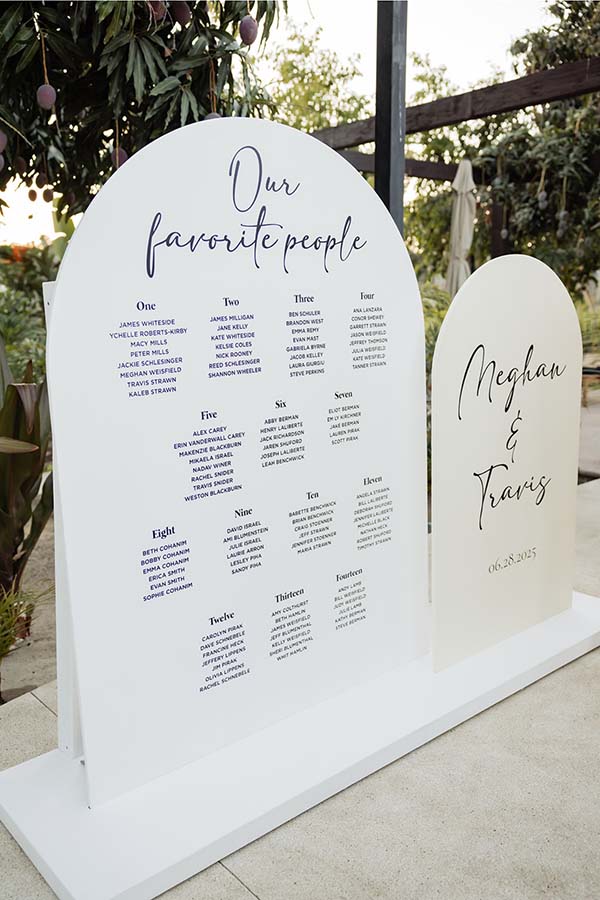 Our
favorite people
One
JAMES WHITESIDE
YCHELLE ROBERTS-KIRBY
MACY MILLS
PETER MILLS
JACKIE SCHLESINGER
MEGHAN WEISFIELD
TRAVIS STRAWN
KALEB STRAWN
Two
JAMES MILLIGAN
JANE KELLY
KATE WHITESIDE
KELSIE COLES
NICK ROONEY
REED SCHLESINGER
SHANNON WHEELER
Three
BEN SCHULER
BRANDON WEST
EMMA REMY
EVAN MAST
GABRIELA BYRNE
JACOB KELLEY
LAURA GIURGIU
STEVE PERKINS
Four
ANA LANZARA
CONOR SHEWEY
GARRETT STRAWN
JASON WEISFIELD
JEFFREY THOMSON
JULIA WEISFIELD
KATE WEISFIELD
TANNER STRAWN
Five
ALEX CAREY
ERIN VANDERWALL CAREY
MAKENZIE BLACKBURN
MIKAELA ISRAEL
NADAV WINER
RACHEL SNIDER
TRAVIS SNIDER
WESTON BLACKBURN
Six
ABBY BERMAN
HENRY LALIBERTE
JACK RICHARDSON
JAREN SHUFORD
JOSEPH LALIBERTE
LEAH BENCHWICK
Seven
ELIOT BERMAN
EM LY KIRCHNER
JAKE BERMAN
LAUREN PIRAK
SCOTT PIRAK
Eight
BETH COHANIM
BOBBY COHANIM
EMMA COHANIM
ERICA SMITH
EVAN SMITH
SOPHIE COHANIM
Nine
DAVID ISRAEL
AMI BLUMENSTEIN
JULIE ISRAEL
LAURIE ARRON
LESLEY PIHA
SANDY PIHA
Ten
BABETTE BENCHWICK
BRIAN BENCHWICK
CRAIG STOENNER
JEFF STRAWN
JENNIFER STOENNER
MARIA STRAWN
Eleven
ANGELA STRAWN
BILL LALIBERTE
DEBORAH SHUFORD
JENNIFER LALIBERTE
MICHELLE BLACK
NATHAN HECK
ROBERT SHUFORD
TIMOTHY STRAWN
Twelve
CAROLYN PIRAK
DAVE SCHNEBELE
FRANCINE HECK
JEFFERY LIPPENS
JIM PIRAK
OLIVIA LIPPENS
RACHEL SCHNEBELE
Thirteen
AMY COLTHURST
BETH HAMLIN
JAMES WEISFIELD
JEFF BLUMENTHAL
KELLY WEISFIELD
SHERI BLUMENTHAL
WHIT HAMLIN
Fourteen
ANDY LAMB
BILL WEISFIELD
JUDY WEISFIELD
JULIE LAMB
KATHY BERMAN
STEVE BERMAN
Meghan
&
Travis
06.28.2025